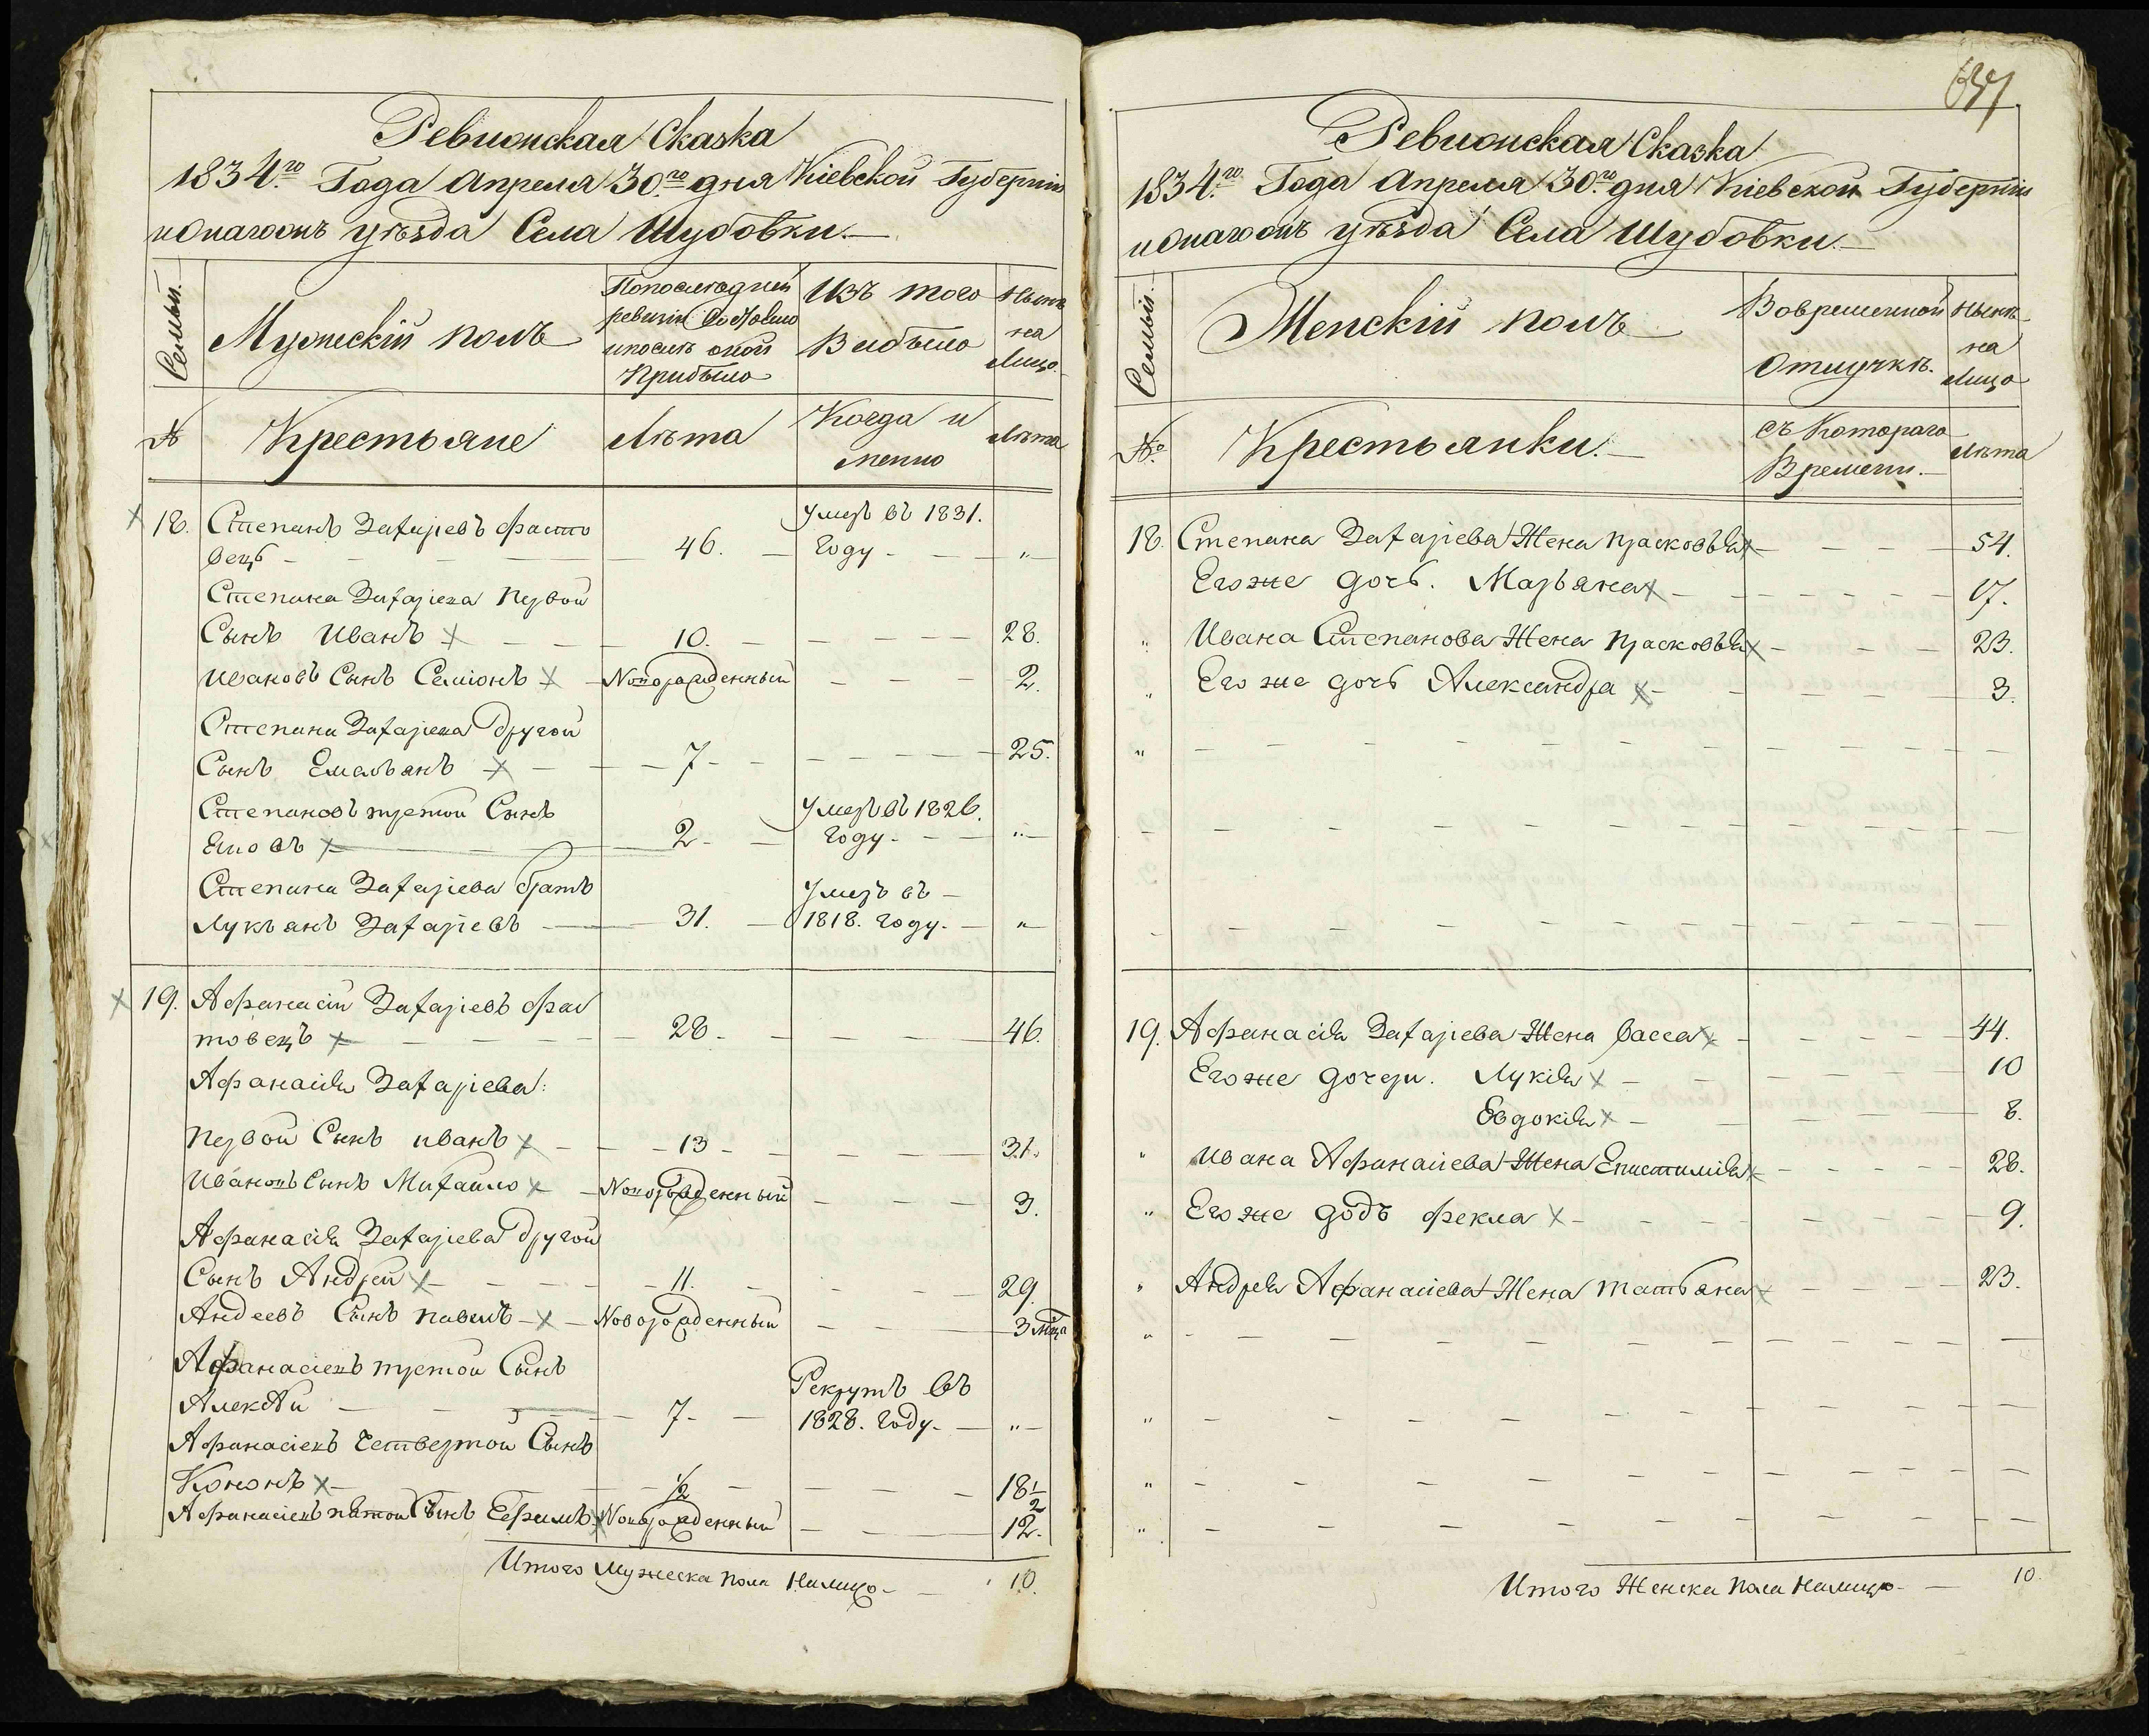 Ревизская Сказка
1834.го Года Апреля 30.го дня Кіевской Губерніи
уѣзда Села Шубовки.
Семьи.
Мужескій полъ
По последней
ревизіи Состояло
и после оной
Прибыло
Изъ того
Выбыло
Нынѣ
на
Лицо
№
Крестьяне
Лѣта
Когда и
менно
Лѣта
18. Степанъ Захаріевъ Фасто
вецъ 46. Умеръ въ 1831.
Году „
Степана Захаріева Первой
Сынъ Иванъ 10. 28.
Ивановъ Сынъ Семіонъ Новорожденный 2.
Степана Захаріева Другой
Сынъ Емельянъ 7 25.
Степановъ третой Сынъ
2 Умеръ въ 1826.
Году „
Степана Захаріева братъ
Лукъянъ Захаріевъ 31. Умеръ въ
1818. Году. „
19. Афанасій Захаріевъ Фас
товецъ 28 46.
Афанасія Захаріева:
Первой Сынъ иванъ 13 31.
Ивановъ Сынъ Михаило Новорожденный 3.
Афанасія Захаріева Другой
Сынъ Андрей 11. 29.
Андеевъ Сынъ павелъ Новорожденный 3 мца
Афанасіевъ третой Сынъ
Алексѣй 7 Рекрутъ въ
1828. Году. „
Афанасіевъ Четвертой Сынъ
Кононъ 1/2 18 1/2
Афанасіевъ пятой Сынъ Ефимъ Новорожденный 12.
Итого Мужеска пола Налицо 10.
Ревизская Сказка
1834.го Года Апреля 30.го дня Кіевской Губерніи
уѣзда Села Шубовки.
Семьи.
Женскій полъ
Во временной
Отлучкѣ.
Нынѣ
на
Лицо
№.
Крестьянки.
съ Котораго
Времени.
Лѣта
18. Степана Захаріева Жена Прасковья 54.
Его же дочь. Марьяна 17.
„ Ивана Степанова Жена Прасковья 23.
„ Его же дочь Александра 3.
„
19. Афанасія Захаріева Жена Васса 44.
Его же дочери. Лукія 10
Евдокія 8.
„ Ивана Афанасіева Жена Епистимія 28.
„ Его же додъ Фекла 9.
„ Андрея Афанасіева Жена татьяна 23.
„
„
„
„
Итого Женска пола Налицо 10.